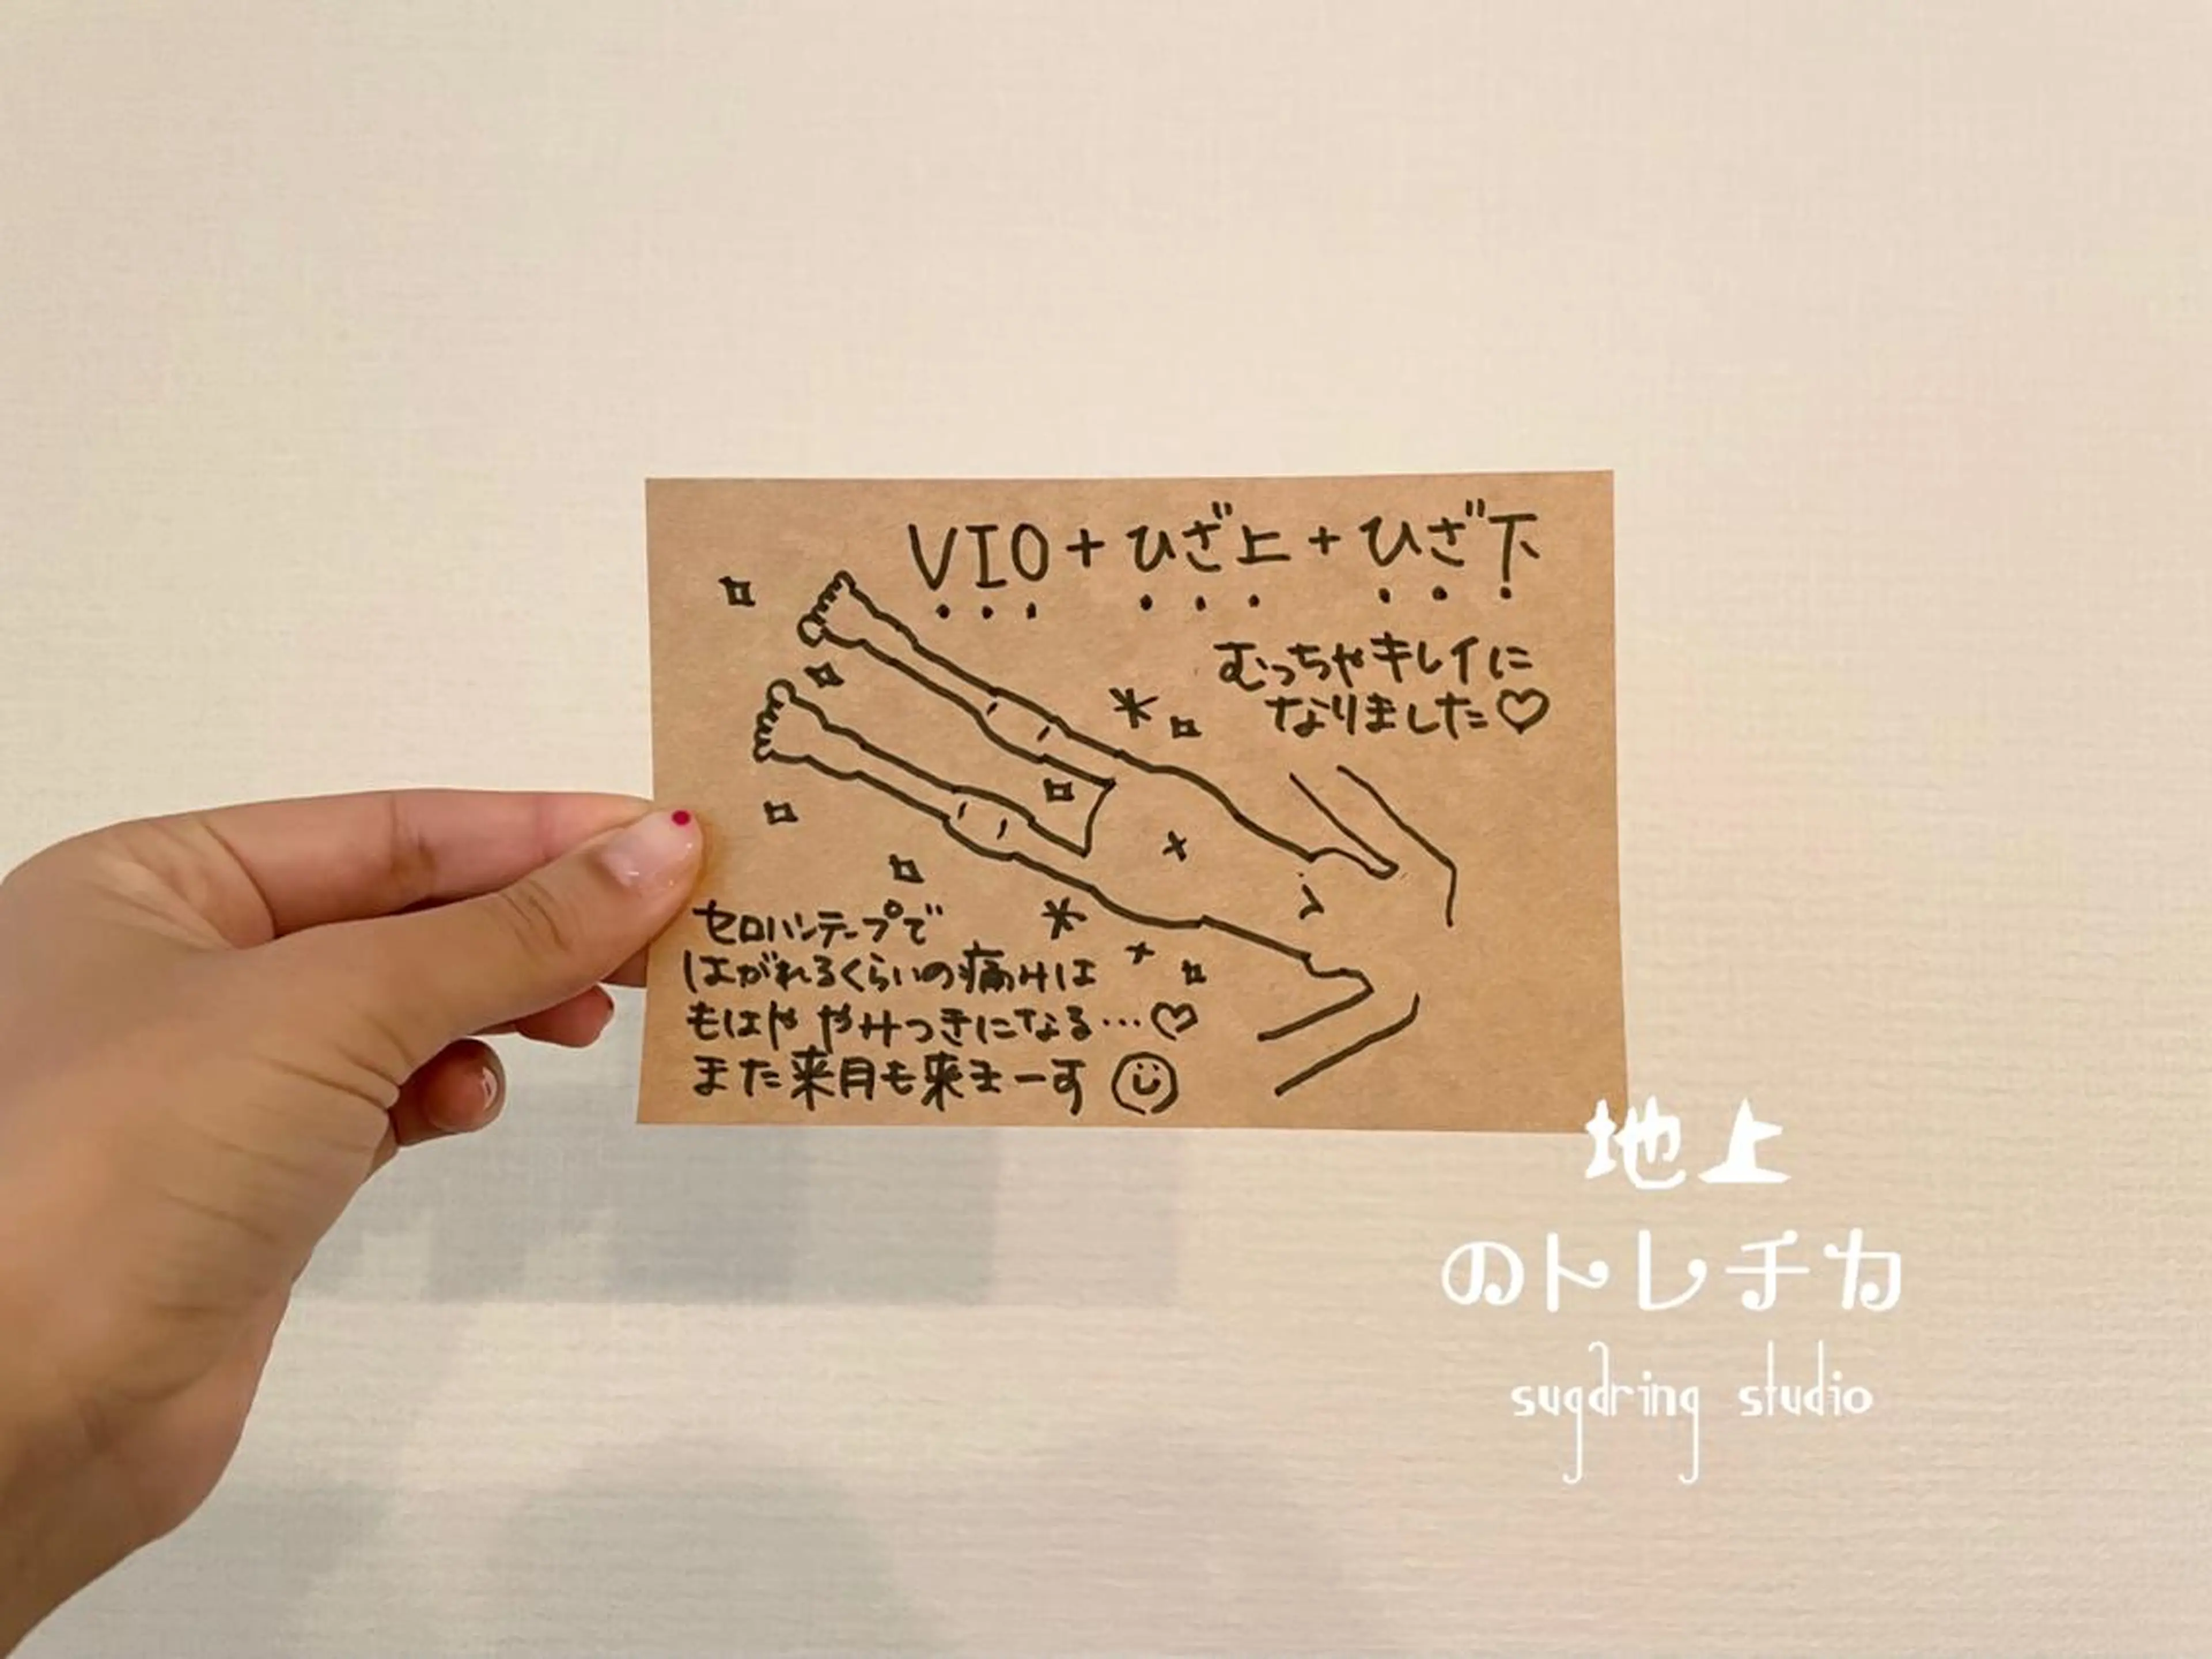 VIO+ひざ上+ひざ下
むっちゃキレイに
なりました♡
セロハンテープで
はがれるくらいの痛みは
もはや やみつきになる…♡
また来月も来まーす
地上
のトレチカ
sugaring studio